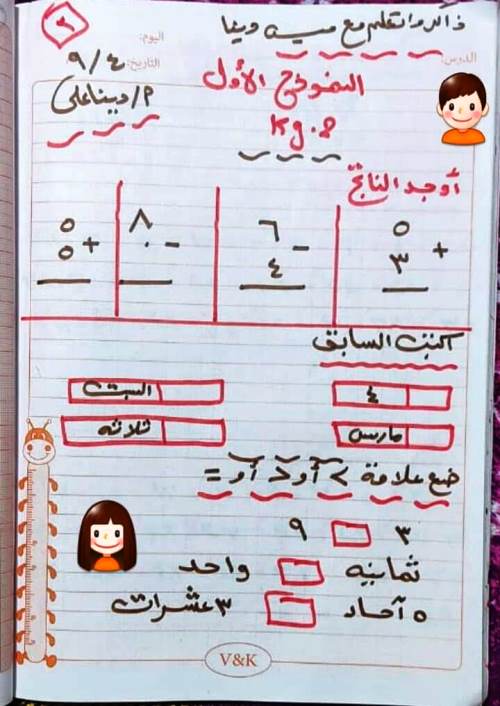 ٢
ذاكر واتعلم مع ميس دينا
اليوم:
الدرس:
التاريخ: ٩/٤
النموذج الأول
م/ دينا على
Kg.2
أوجد الناتج
٥ + ٣
٦ - ٤
٨ - ٠
٥ + ٥
اكتب السابق
٤
السبت
مارس
ثلاثه
ضع علامة > أو < أو =
٣ ٩
ثمانيه واحد
٥ آحاد ٣ عشرات
V&K